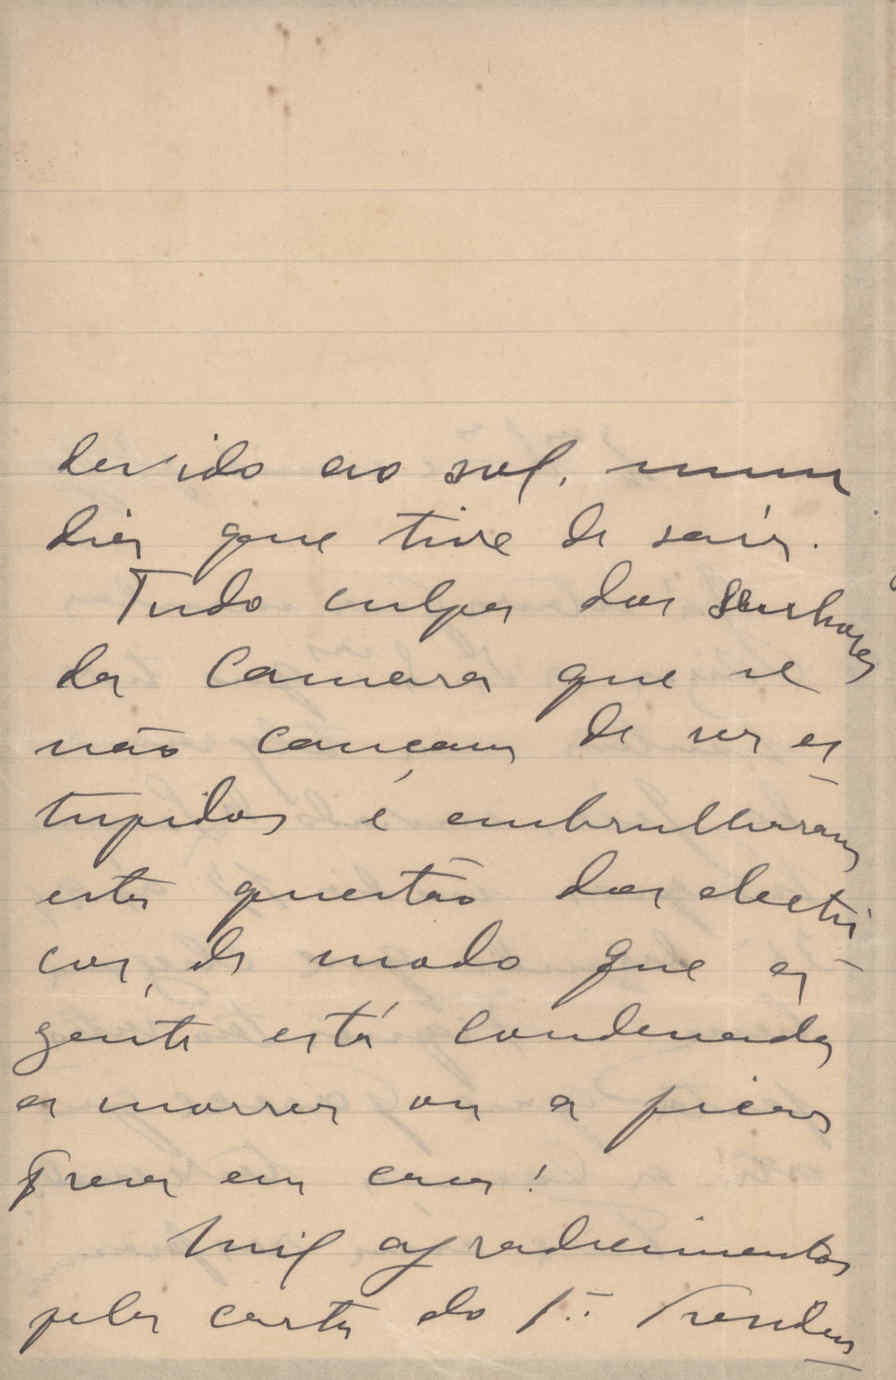 devido ao sol, num
dia que tive de sair.
Tudo culpa dos Senhores
da Camara que se
não cançam de ser es-
tupidos e embrulharam
esta questão dos electri-
cos, de modo que a
gente está condenada
a morrer ou a ficar
presa em casa!
Mil agradecimentos
pela carta do